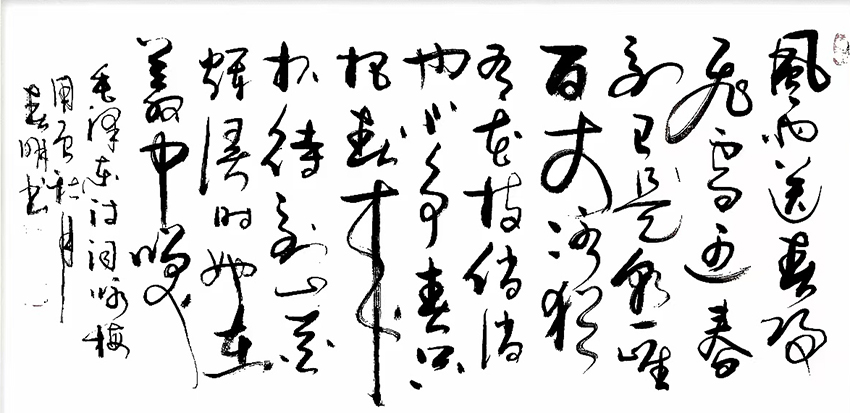 風雨送春歸
飛雪迎春
到已是懸崖
百丈冰猶
有花枝俏俏
也不爭春只
把春來
报待到山花
爛漫時她在
叢中笑
毛澤东诗词咏梅
秋月
春明书